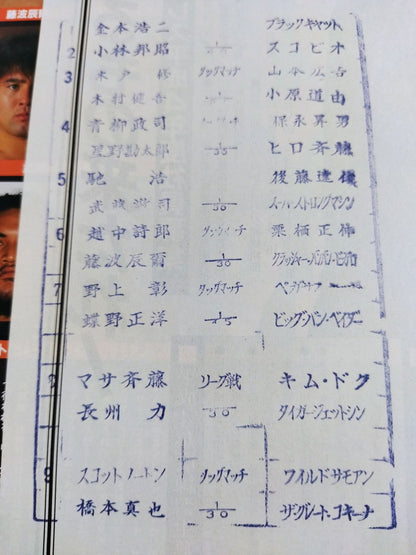 藤波辰
1 金本浩二 ブラックキャット
2 小林邦昭 1/20 スコピオ
3 木戸 修 タッグマッチ 山本広吉
木村健吾 小原道由
4 青柳政司 保永昇男
星野勘太郎 1/30 ヒロ斉藤
5 馳 浩 後藤達俊
武藤敬司 1/30 スーパーストロングマシン
6 越中詩郎 タッグマッチ 栗栖正伸
藤波辰爾 1/30 クラッシャー・バンバン・ビガロ
7 野上 彰 タッグマッチ
蝶野正洋 1/45 ビッグ・バン・ベイダー
8 マサ斉藤 リーグ戦 キム・ドク
長州 力 1/30 タイガージェットシン
9 スコットノートン タッグマッチ ワイルドサモアン
橋本真也 1/30 ザ・グレートコキーナ